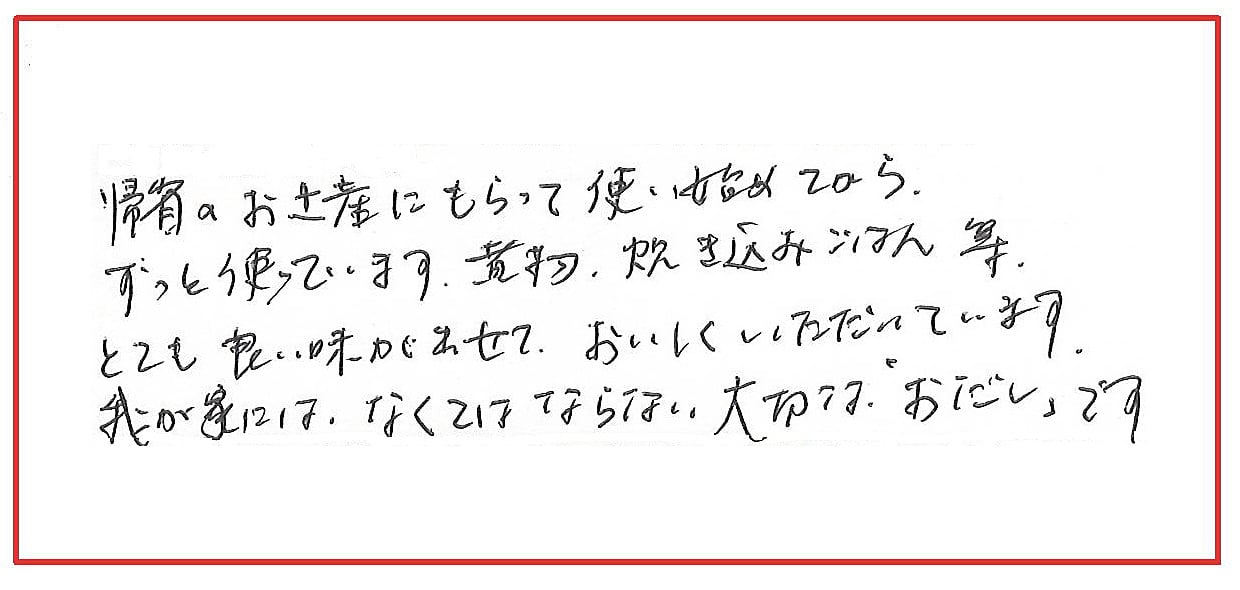 帰省のお土産にもらって使い始めてから、
ずっと使っています。煮物、炊き込みごはん 等、
とても良い味が出せて、おいしくいただいています。
我が家には、なくてはならない大切な「おだし」です